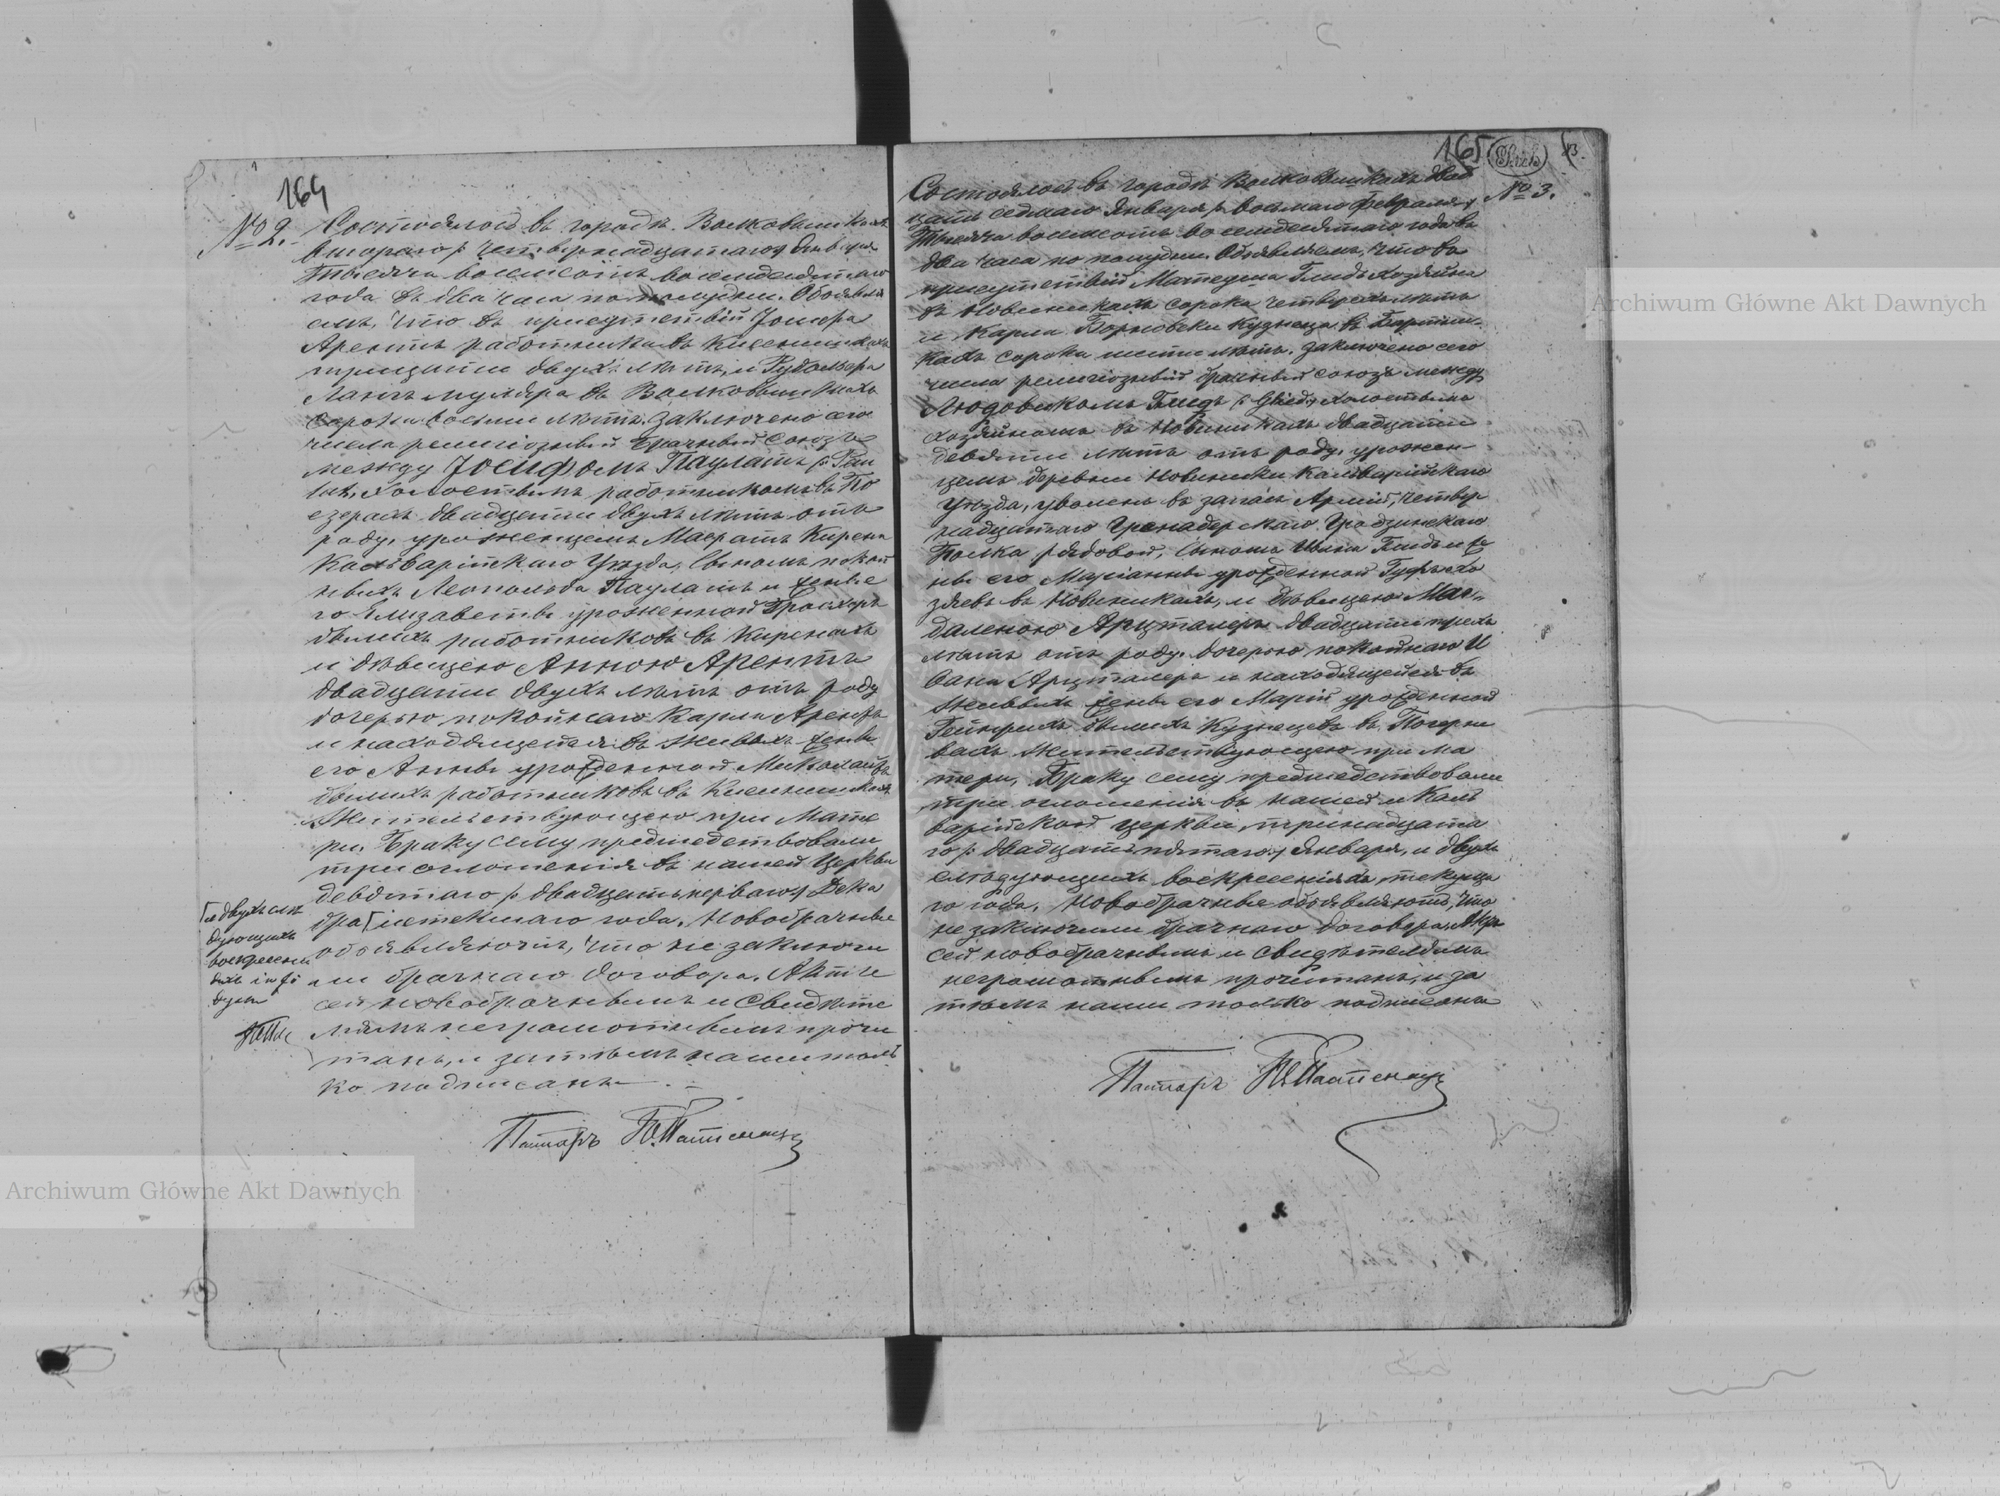 164
№ 2. Состоялось въ городѣ Волковышкахъ
втораго /: четырнадцатаго :/ Января
тысяча восемьсотъ восемьдесятаго
года въ два часа по полудни. Объявля
емъ, что въ присутствіи Іосифа
Арентъ работника въ
тридцати двухъ лѣтъ, и Рудольфа
Лангъ муляра въ Волковышкахъ
сорока восьми лѣтъ, заключено сего
числа религіозный брачный союзъ
между Іосифомъ Паулатъ /: Pau
lat, холостымъ работникомъ въ По
езерахъ двадцати двухъ лѣтъ отъ
роду, урожденцемъ Маіратъ Кирсна
Кальварійскаго Уѣзда, сыномъ покой
ныхъ Леопольда Паулатъ и жены е
го Елизаветы урожденной
бывшихъ работниковъ въ Кирснахъ
и дѣвицею Анною Арентъ
двадцати двухъ лѣтъ отъ роду
дочерью покойнаго Карла Арентъ
и находящейся въ живыхъ жены
его Анны урожденной
бывшихъ работниковъ въ
жительствующею при Мате
ри. Браку сему предшедствовали
три оглашенія въ нашей Церкви
девятаго /: двадцать перваго :/ Дека
бря истекшаго года. Новобрачные
объявляютъ, что не заключи
ли брачнаго договора. Актъ
сей новобрачнымъ и свидѣте
лямъ неграмотнымъ прочи
танъ, и затѣмъ нами толь
ко подписанъ.
и двухъ слѣ
дующихъ
воскресені
яхъ
Пасторъ
165
№ 3.
Состоялось въ городѣ Волковышкахъ двад
цать седмаго Января /: восьмаго Февраля :/
тысяча восемьсотъ восемьдесятаго года въ
два часа по полудни. Объявляемъ, что въ
присутствіи Матеуша Глидъ хозяина
въ Новиникахъ сорока четырехъ лѣтъ
и Карла Борковски кузнеца въ
кахъ сорока шести лѣтъ, заключено сего
числа религіозный брачный союзъ между
Людовикомъ Глидъ /: Glied :/ холостымъ
хозяиномъ въ Новиникахъ двадцати
девяти лѣтъ отъ роду, урожен
цемъ деревни Новиники Кальварійскаго
Уѣзда, уволенъ въ запасъ Арміи, четыр
надцатаго Гренадерскаго Грузинскаго
Полка рядовой, сыномъ Ивана Глидъ и же
ны его Маріанны урожденной хо
зяевъ въ Новиникахъ, и дѣвицею Маг
даленою Арцталеръ двадцати трехъ
лѣтъ отъ роду, дочерью покойнаго И
вана Арцталеръ и находящейся въ
живыхъ жены его Маріи урожденной
Гейнрихъ бывшихъ кузнецовъ въ
вахъ жительствующею при ма
тери. Браку сему предшедствовали
три оглашенія въ нашей и Каль
варійской церкви, тринадцата
го /: двадцать пятаго :/ Января, и двухъ
слѣдующихъ воскресеніяхъ текуща
го года. Новобрачные объявляютъ, что
не заключили брачнаго договора. Актъ
сей новобрачнымъ и свидѣтелямъ
неграмотнымъ прочитанъ, и за
тѣмъ нами только подписанъ
Пасторъ
Archiwum Główne Akt Dawnych
Archiwum Główne Akt Dawnych